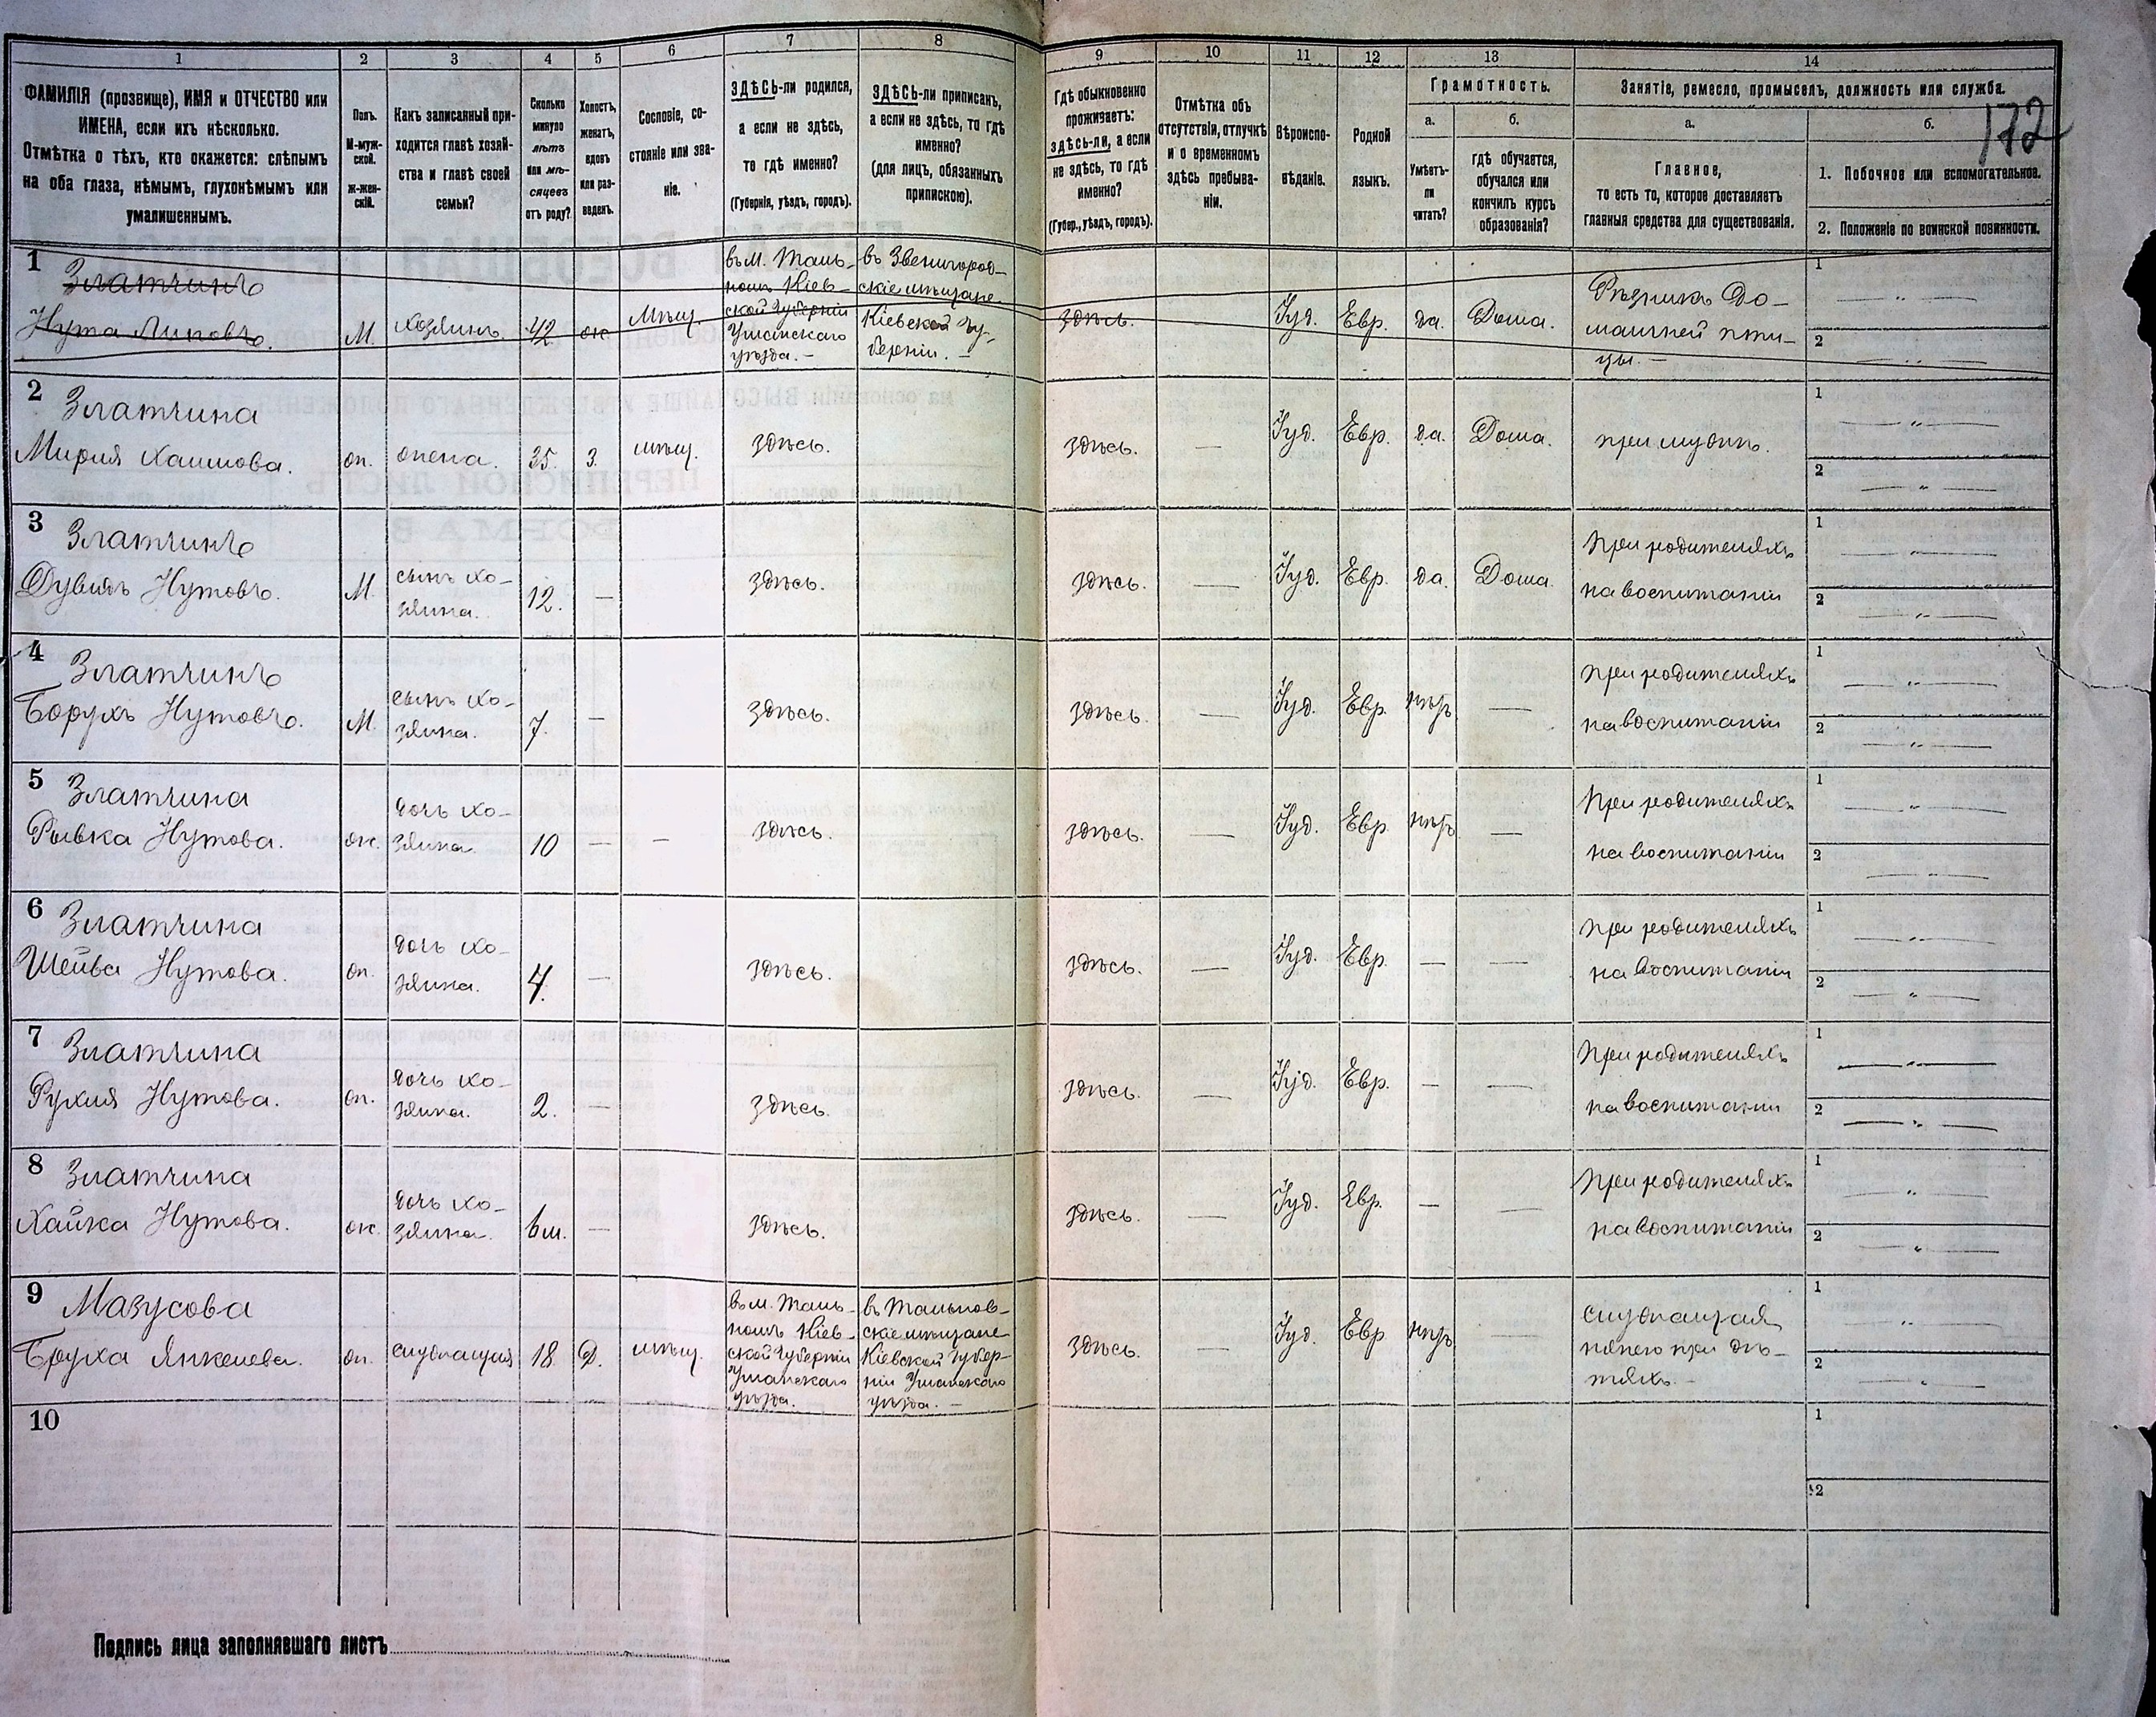 1 2 3 4 5 6 7 8 9 10 11 12 13 14
ФАМИЛІЯ (прозвище), ИМЯ и ОТЧЕСТВО или
ИМЕНА, если ихъ нѣсколько.
Отмѣтка о тѣхъ, кто окажется: слѣпымъ
на оба глаза, нѣмымъ, глухонѣмымъ или
умалишеннымъ.
Полъ.
М-муж-
ской.
ж-жен-
скій.
Какъ записанный при-
ходится главѣ хозяй-
ства и главѣ своей
семьи?
Сколько
минуло
лѣтъ
или мѣ-
сяцевъ
отъ роду?
Холостъ,
женатъ,
вдовъ
или раз-
веденъ.
Сословіе, со-
стояніе или зва-
ніе.
ЗДѢСЬ-ли родился,
а если не здѣсь,
то гдѣ именно?
(Губернія, уѣздъ, городъ).
ЗДѢСЬ-ли приписанъ,
а если не здѣсь, то гдѣ
именно?
(для лицъ, обязанныхъ
припискою).
Гдѣ обыкновенно
проживаетъ:
здѣсь-ли, а если
не здѣсь, то гдѣ
именно?
(Губер., уѣздъ, городъ).
Отмѣтка объ
отсутствіи, отлучкѣ
и о временномъ
здѣсь пребыва-
ніи.
Вѣроиспо-
вѣданіе.
Родной
языкъ.
Грамотность.
а.
Умѣетъ-
ли
читать?
б.
гдѣ обучается,
обучался или
кончилъ курсъ
образованія?
Занятіе, ремесло, промыселъ, должность или служба.
а.
Главное,
то есть то, которое доставляетъ
главныя средства для существованія.
б.
172
1. Побочное или вспомогательное.
2. Положеніе по воинской повинности.
1
Златчинъ
Нута Липовъ.
М.
хозяинъ
42
ж
Мѣщ.
въ м. Таль-
номъ Кіев-
ской Губерніи
Уманскаго
уѣзда. —
въ Звенигород-
скіе мѣщане
Кіевской Гу-
берніи. —
здѣсь.
Іуд.
Евр.
да.
Дома.
Рѣзникъ До-
машней пти-
цы. —
1
2
2
Златчина
Мирия Хаимова.
ж.
жена.
35.
З.
мѣщ.
здѣсь.
здѣсь.
—
Іуд.
Евр.
да.
Дома.
при мужѣ.
1
2
3
Златчинъ
Дувидъ Нутовъ.
М.
сынъ хо-
зяина.
12.
—
здѣсь.
здѣсь.
—
Іуд.
Евр.
да.
Дома.
При родителяхъ
на воспитаніи
1
2
4
Златчинъ
Борухъ Нутовъ.
М.
сынъ хо-
зяина.
7.
—
здѣсь.
здѣсь.
—
Іуд.
Евр.
нѣтъ
—
При родителяхъ
на воспитаніи
1
2
5
Златчина
Рывка Нутова.
ж.
дочь хо-
зяина
10
—
—
здѣсь.
здѣсь.
—
Іуд.
Евр.
нѣтъ
—
При родителяхъ
на воспитаніи
1
2
6
Златчина
Шейва Нутова.
ж.
дочь хо-
зяина.
4.
—
здѣсь.
здѣсь.
—
Іуд.
Евр.
—
—
При родителяхъ
на воспитаніи
1
2
7
Златчина
Рухля Нутова.
ж.
дочь хо-
зяина.
2.
—
здѣсь.
здѣсь.
—
Іуд.
Евр.
—
—
При родителяхъ
на воспитаніи
1
2
8
Златчина
Хайка Нутова.
ж.
дочь хо-
зяина.
6 м.
—
здѣсь.
здѣсь.
—
Іуд.
Евр.
—
—
При родителяхъ
на воспитаніи
1
2
9
Мазусова
Бруха Янкелева.
ж.
служащая
18.
Д.
мѣщ.
въ м. Таль-
номъ Кіев-
ской Губерніи
Уманскаго
уѣзда.
въ Тальнов-
скіе мѣщане
Кіевской Губер-
ніи Уманскаго
уѣзда. —
здѣсь.
—
Іуд.
Евр
нѣтъ
—
служащая
нянею при дѣ-
тяхъ. —
1
2
10
1
2
Подпись лица заполнявшаго листъ